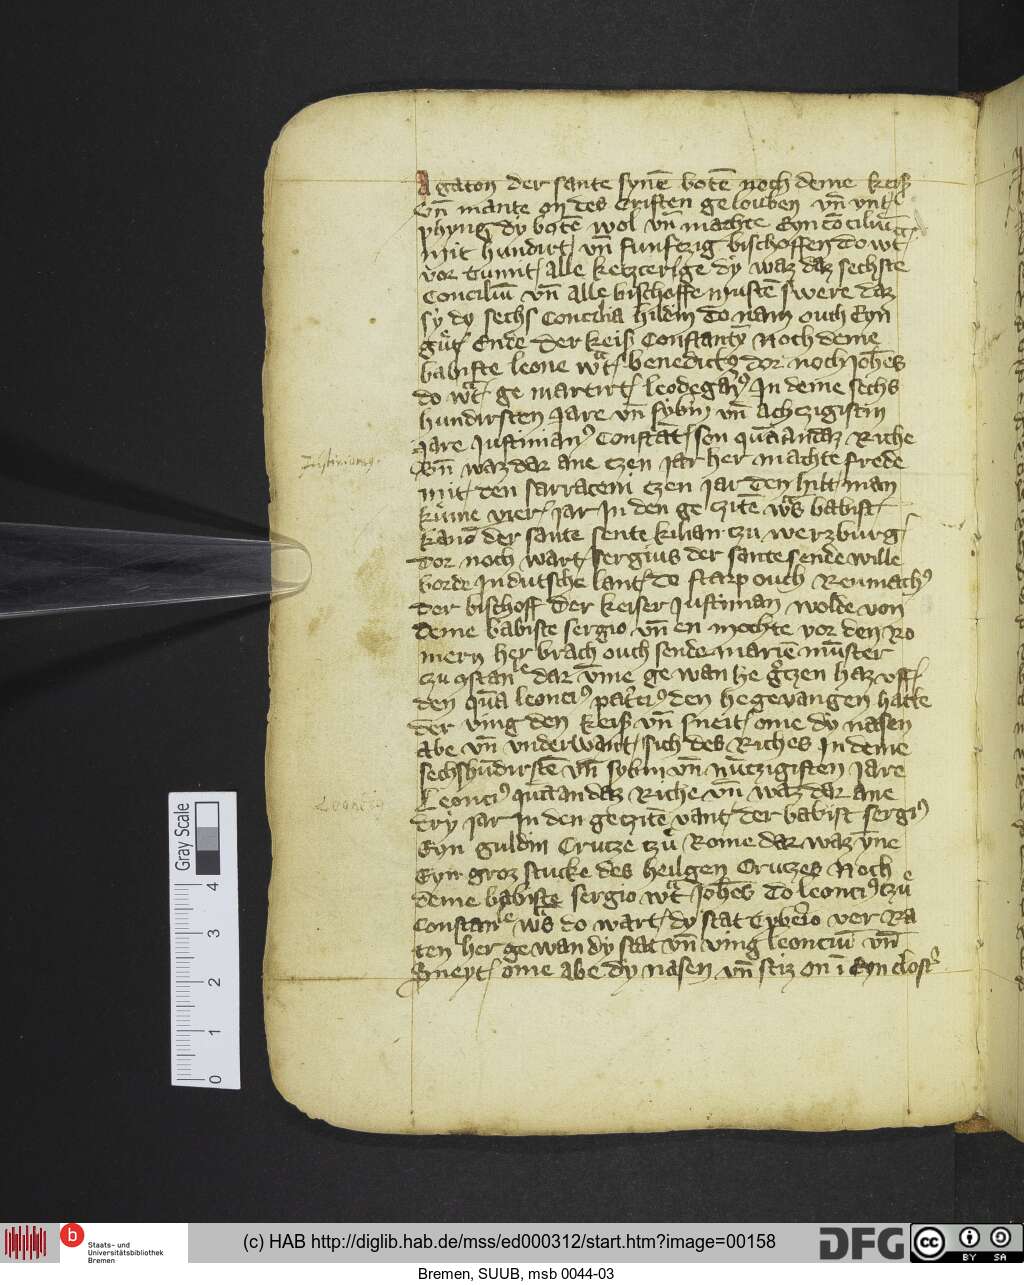 Agaton der sante synē botē noch deme keiß
Vn̄ mante on des Cristen gelouben vn̄ vnt
phyng dy botē wol vn̄ machte Eyn conciliū
mit hundirt vn̄ funfczig bischoffen do wt
vor tumit alle keczcerige dy waz daz sechste
Conciliū vn̄ alle bischoffe mustē swere daz
sy dy sechs Concilia hildin do nam ouch Eyn
gut Ende der keiß Constantȳ Noch deme
babiste leone wt benedictꝯ dor noch Joh̄es
do wt ge martirt leodegariꝯ In deme sechs
hundirsten Jare vn̄ sybin vn̄ achczigistin
Jare Justinianꝯ Constāt son quā an daz Riche
Vn̄ waz dar ane czen Jar her machte frede
mit den sarraceni czen Jar den hilt man
kume vier Jar In den ge czitē ws babist
kano der sante sente kilian czu werzburg
dor noch wart sergius der sante sende wille
borde In dutsche lant do starp ouch Reumachꝯ
der bischoff der keiser Justinian wolde von
deme babiste sergio vn̄ en mochte vor den Ro
mern her brach ouch sende marie munster
czu ꝯstan dar vme ge wan he gczen haz vff
den quā leonciꝯ patriꝯ den he gevangen hatte
der ving den keiß vn̄ sneit ome dy nasen
abe vn̄ vnderwant sich des Riches In deme
sechshūdirstē vn̄ sybin vn̄ nūczigisten Jare
Leonciꝯ quā an daz Riche vn̄ waz dar ane
dry Jar In den geczitē vant der babist sergiꝯ
Eyn guldin Crucze czu Rome dar waz yne
Eyn groz stucke des heilgen Cruczes Noch
deme babiste sergio wt Joh̄es do leonciꝯ czu
Constan ws do wart dy stat Tyberio ver Ra
ten her ge wan dy stat vn̄ ving leonciū vn̄
Sneyt ome abe dy nasen vn̄ stiz on ī Eyn closť
Justinianꝯ
Leoncꝯ
Gray Scale
4
3
2
1
0
b
Staats- und
Universitätsbibliothek
Bremen
(c) HAB http://diglib.hab.de/mss/ed000312/start.htm?image=00158
DFG
cc
BY SA
Bremen, SUUB, msb 0044-03